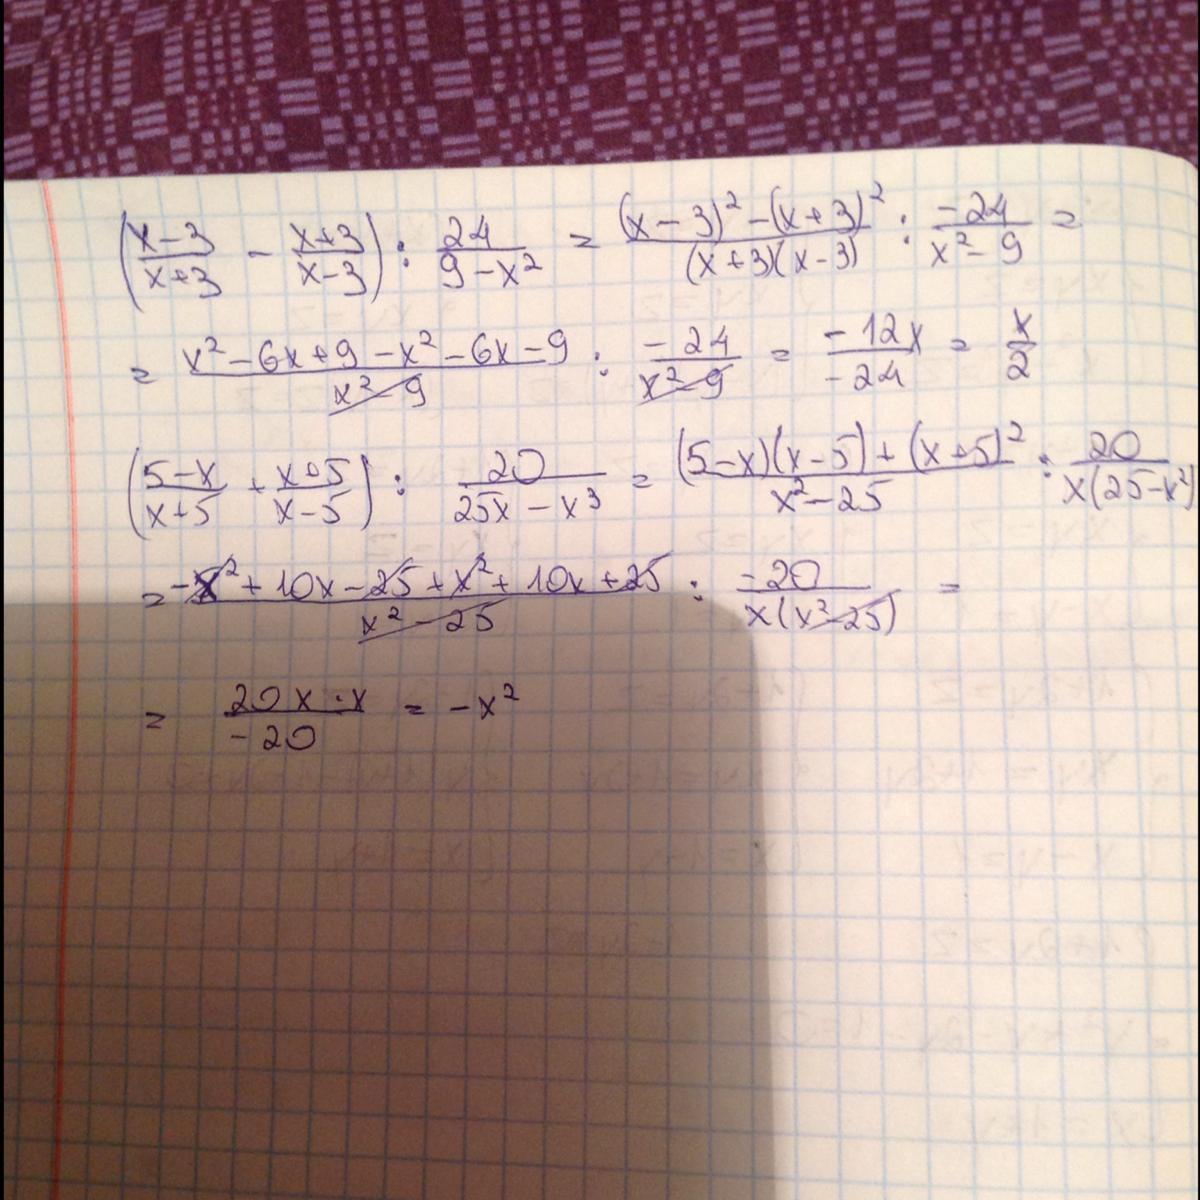 (x-3/x+3 - x+3/x-3) : 24/9-x² = (x-3)²-(x+3)²/(x+3)(x-3) : -24/x²-9 =
= x²-6x+9-x²-6x-9/x²-9 : -24/x²-9 = -12x/-24 = x/2
(5-x/x+5 + x+5/x-5) : 20/25x-x³ = (5-x)(x-5)+(x+5)²/x²-25 : 20/x(25-x²)
= -x²+10x-25+x²+10x+25/x²-25 : -20/x(x²-25) =
= 20x·x/-20 = -x²